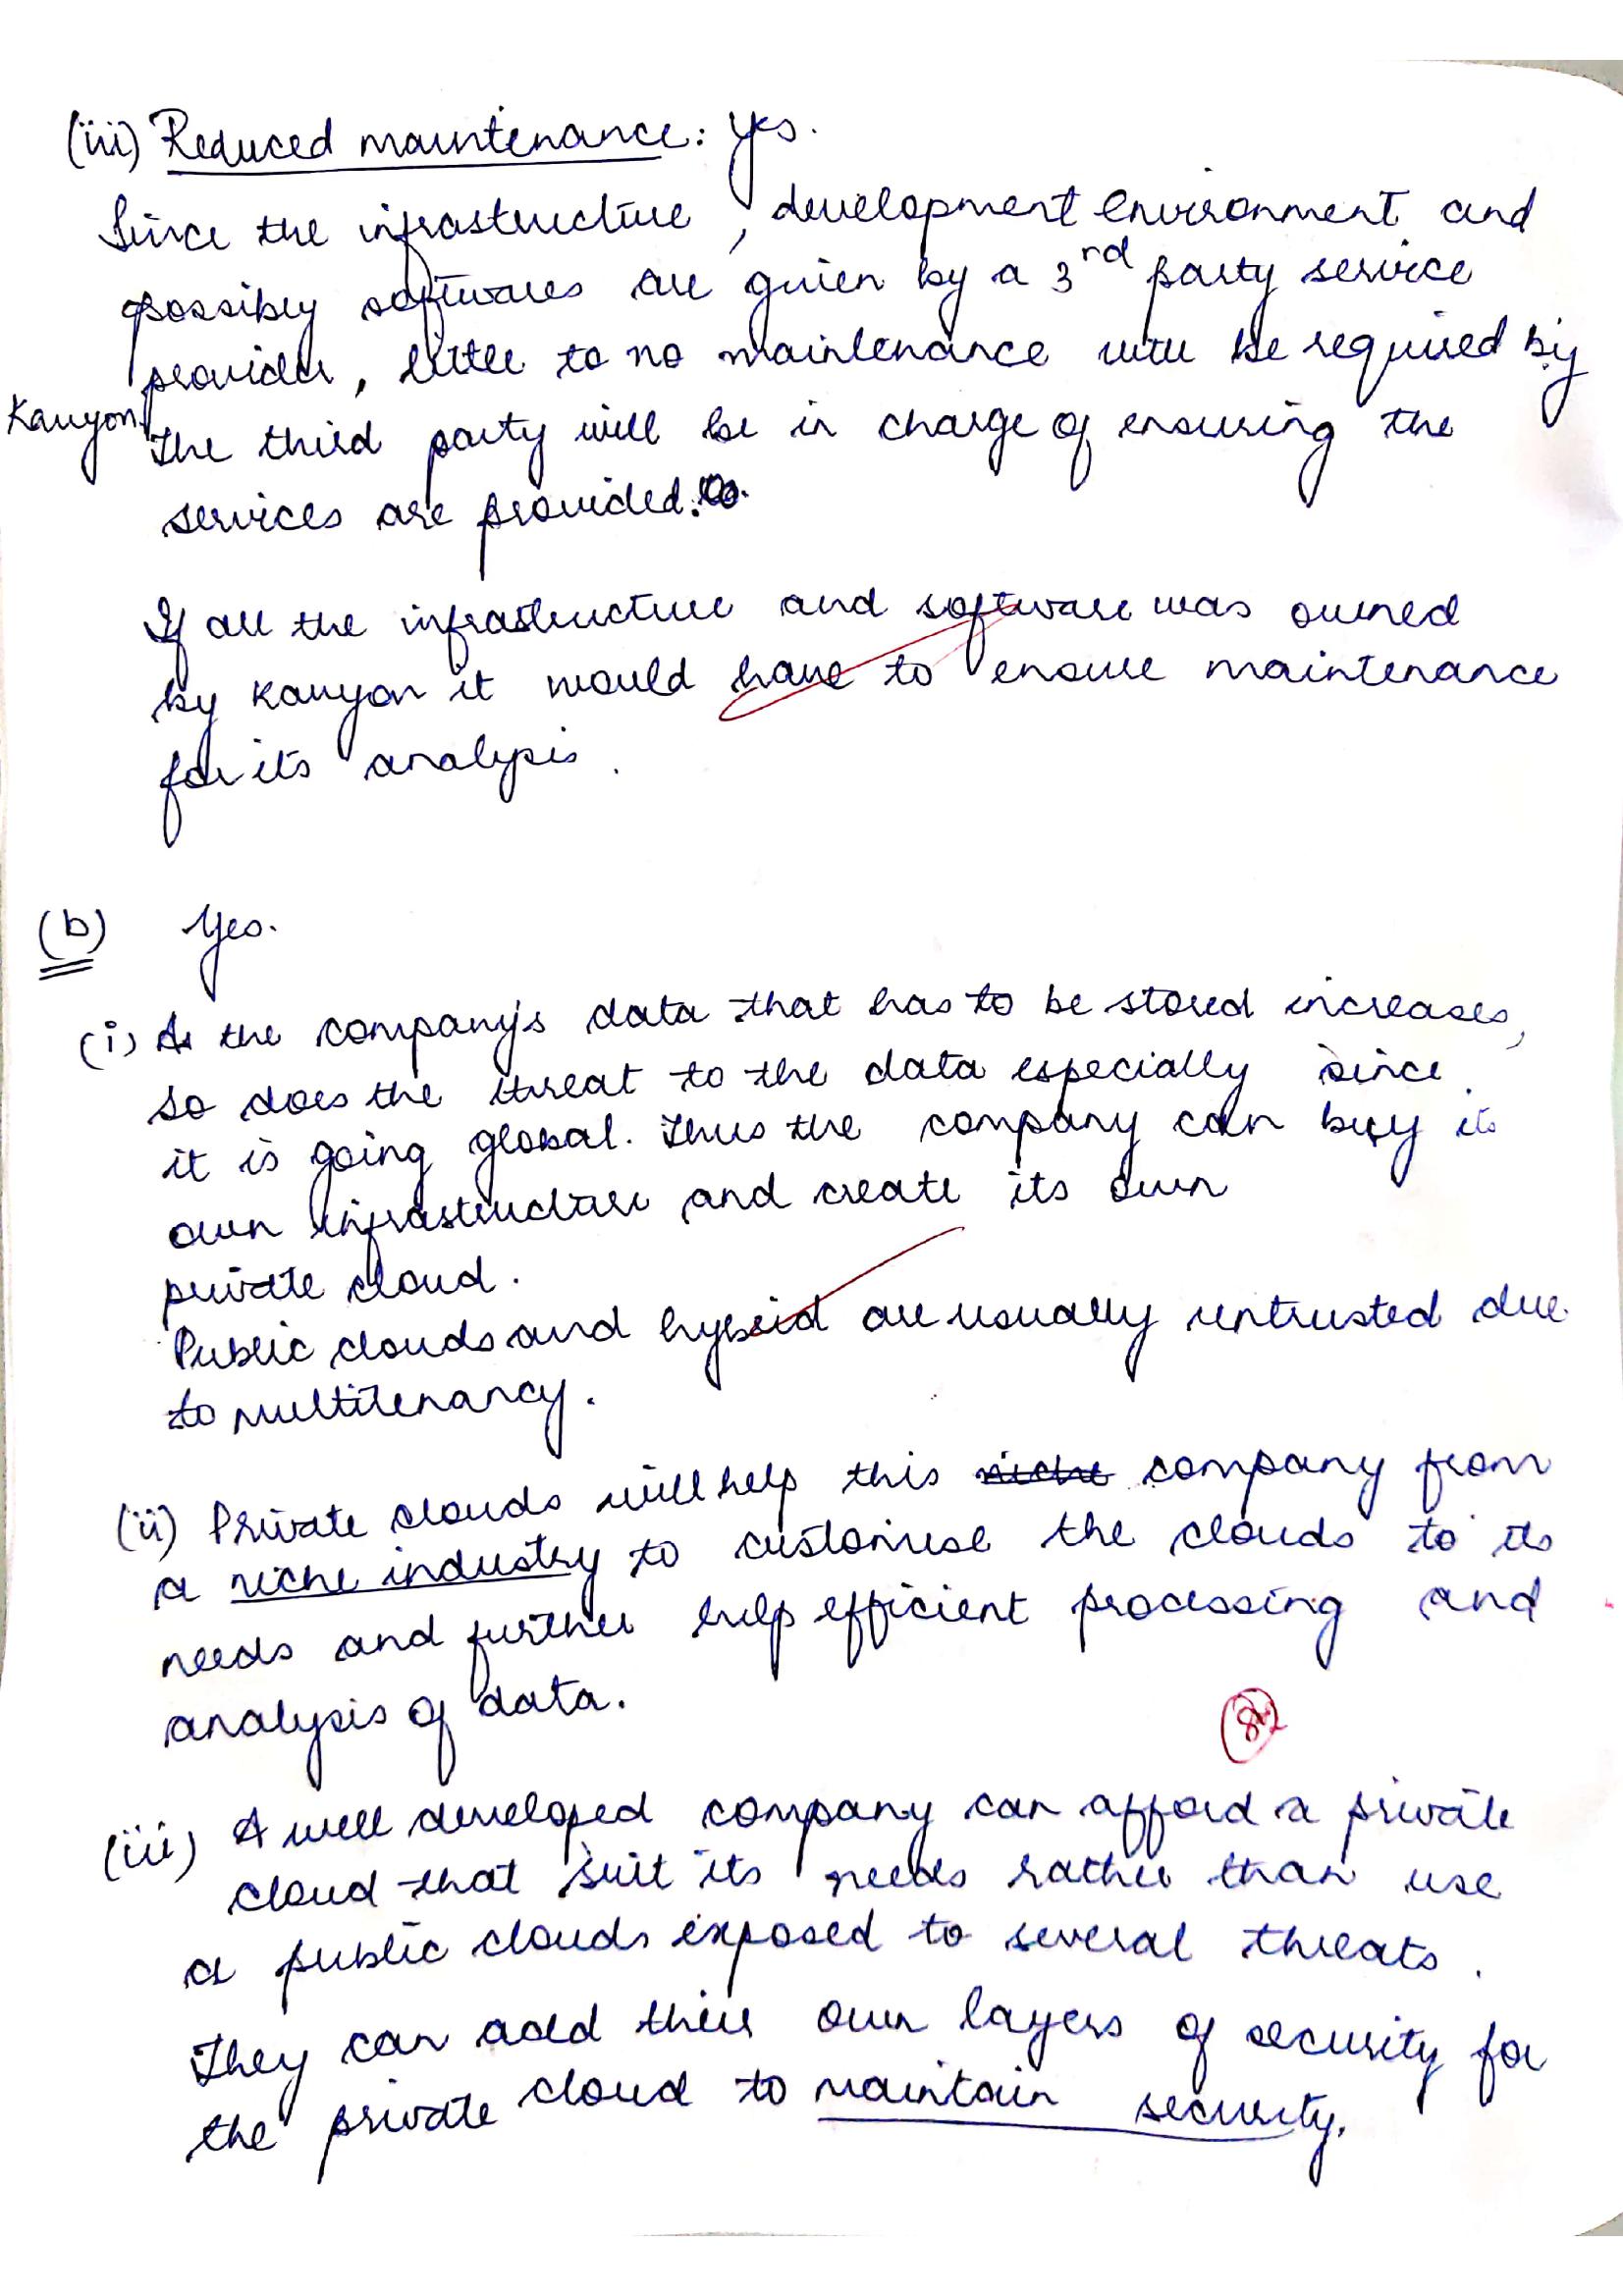 (iii) Reduced maintenance: Yes.
Since the infrastructure, development environment and
possibly softwares are given by a 3rd party service
provider, little to no maintenance will be required by
Kanyon. The third party will be in charge of ensuring the
services are provided.
If all the infrastructure and software was owned
by Kanyon it would have to ensure maintenance
for its analysis.
(b) Yes.
(i) As the company's data that has to be stored increases,
so does the threat to the data especially since
it is going global. Thus the company can buy its
own infrastructure and create its own
private cloud.
Public clouds and hybrid are usually untrusted due
to multitenancy.
(ii) Private clouds will help this niche company from
a niche industry to customise the clouds to its
needs and further help efficient processing and
analysis of data.
(iii) A well developed company can afford a private
cloud that suit its needs rather than use
a public clouds exposed to several threats.
They can add their own layers of security for
the private cloud to maintain security.